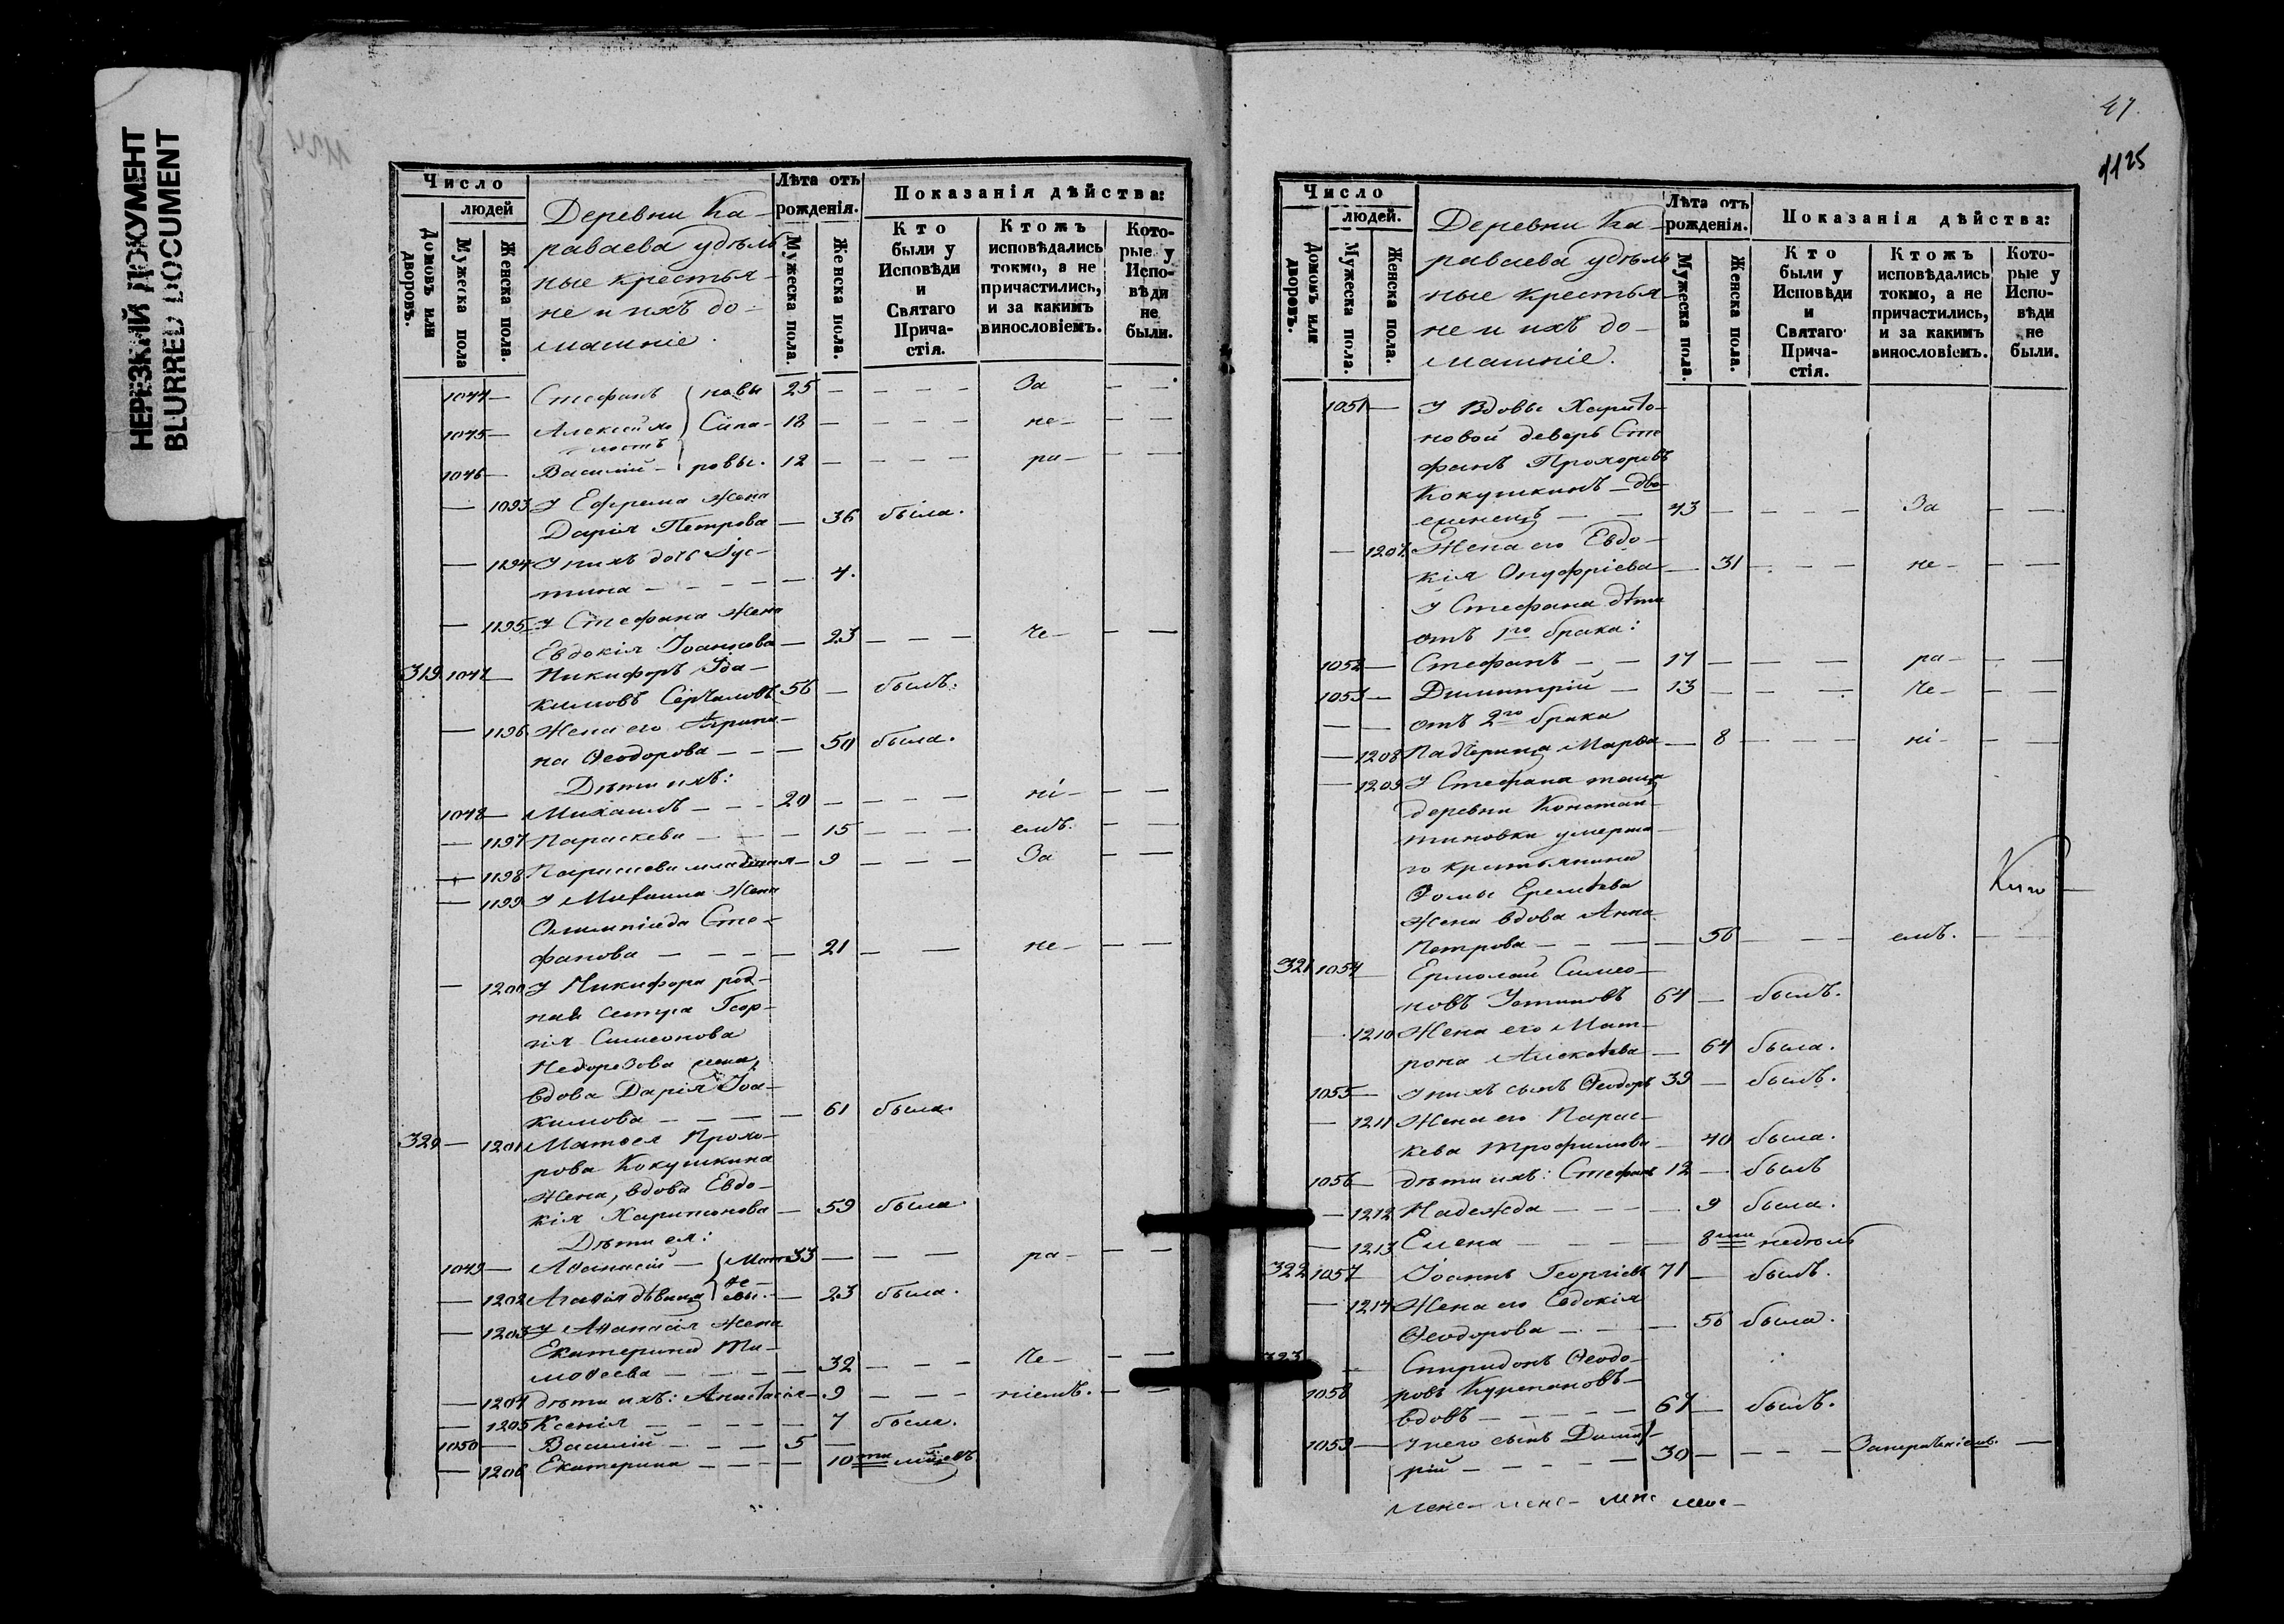 НЕРЕЗКИЙ ДОКУМЕНТ
BLURRED DOCUMENT
Число
людей
Домовъ или дворовъ.
Мужеска пола
Женска пола.
Деревни Ка-
раваева удѣль
ные крестья-
не и ихъ до-
машніе.
Лѣта отъ
рожденія.
Мужеска пола.
Женска пола.
Показанія дѣйства:
Кто
были у
Исповѣди
и
Святаго
Прича-
стія.
Ктожъ
исповѣдались
токмо, а не
причастились,
и за какимъ
винословіемъ.
Кото-
рые у
Испо-
вѣди
не
были.
1044 — Стефанъ 25 — — — — За — —
1045 — Алексій Сила- 18 — — — — не- — —
1046 — Василій — ровы. 12 — — — — ра- — —
— 1093 У Ефрема жена
Дарія Петрова — 36 была.
— 1194 У нихъ дочь Іус-
тина — — — — 4.
— 1195 У Стефана жена
Евдокія Іоаннова — 23 — — — че- — —
319 1047 — Никифоръ Іоа-
кимовъ 56 — былъ.
— 1196 Жена его Агрипи-
на Ѳеодорова — — — 50 была.
Дѣти ихъ:
1048 — Михаилъ — — — 20 — — — — ні- — —
— 1197 Параскева — — — 15 — — — емъ. — —
— 1198 Параскева младшая — 9 — — — За — —
— 1199 У Михаила жена
Олимпіада Сте-
фанова — — — — 21 — — не- — —
— 1200 У Никифора род-
ная сестра Геор-
гія Симеонова
Недорезова жена,
вдова Дарія Іоа-
кимова — — — — 61 была.
320 — 1201 Матѳея Прохо-
рова Кокушкина
жена, вдова Евдо-
кія Харитонова — 59 была.
Дѣти ея:
1049 — Аѳанасій — Мат- 33 — — — ра- — —
— 1202 Агаѳія дѣвица ѳе-евы. — 23 была.
— 1203 У Аѳанасія жена
Екатерина Ти-
моѳеева — — — — 32 — — — че- — —
— 1204 дѣти ихъ: Анастасія — 9 — — — ніемъ. — —
— 1205 Ксенія — — — — — 7 была.
1050 — Василій — — — 5 —
— 1206 Екатерина — — — — 10ти
47.
1125
Число
людей.
Домовъ или дворовъ.
Мужеска пола.
Женска пола.
Деревни Ка-
раваева удѣль
ные крестья-
не и ихъ до-
машніе.
Лѣта отъ
рожденія.
Мужеска пола.
Женска пола.
Показанія дѣйства:
Кто
были у
Исповѣди
и
Святаго
Прича-
стія.
Ктожъ
исповѣдались
токмо, а не
причастились,
и за какимъ
винословіемъ.
Кото-
рые у
Испо-
вѣди
не
были.
1051 — У Вдовы Харито-
новой деверь Сте
фанъ Прохоровъ
Кокушкинъ — дво-
еженецъ — — 43 — — — — За — —
— 1207 Жена его Евдо-
кія Онуфріева — 31 — — — не- — —
У Стефана дѣти
отъ 1го брака:
1052 — Стефанъ — — 17 — — — ра- — —
1053 — Димитрій — 13 — — — че- — —
— — отъ 2го брака
— 1208 Падчерица Марѳа — 8 — — — ні- — —
— 1209 У Стефана теща
деревни Констан-
тиновки умерша-
го крестьянина
Ѳомы Еремѣева
жена вдова Анна
Петрова — — — — 56 — — — емъ. — —
321 1054 — Ермолай Симео-
новъ Устиновъ 64 — былъ.
— 1210 Жена его Мат-
рона Алексѣева — 64 была.
1055 — У нихъ сынъ Ѳеодоръ 39 — былъ.
— 1211 Жена его Парас-
кева Трофимова — 40 была.
1056 — дѣти ихъ: Стефанъ 12 — былъ
— 1212 Надежда — — — — 9 была.
— 1213 Елена — — — — 8ми недѣль
322 1057 — Іоаннъ Георгіевъ 71 — былъ.
— 1214 Жена его Евдокія
Ѳеодорова — — — 56 была.
323 — Спиридонъ Ѳеодо-
1058 ровъ
вдовъ — — — — 67 — былъ.
1059 — У него сынъ Димит-
рій — — — — — 30 — — — — —